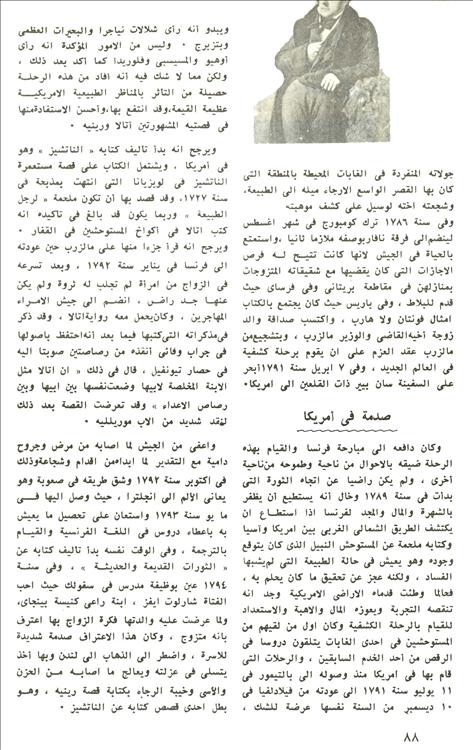 جولاته المنفردة فى الغابات المحيطة بالمنطقة التى
كان بها القصر الواسع الارجاء ميله الى الطبيعة،
وشجعته اخته لوسيل على كشف موهبته
وفى سنة ١٧٨٦ ترك كومبورج فى شهر اغسطس
لينضم الى فرقة نافاربوصفه ملازما ثانيا ،واستمتع
بالحياة فى الجيش لانها كانت تتيح لــه فرص
الاجازات التى كان يقضيها مع شقيقاته المتزوجات
بمنازلهن فى مقاطعة بريتانى وفى فرساى حيث
قدم للبلاط ، وفى باريس حيث كان يجتمع بالكتاب
امثال فونتان ولا هارب ، واكتسب صداقة والد
زوجة أخيه القاضى والوزير مالزرب ، وبتشجيع من
مالزرب عقد العزم على ان يقوم برحلة كشفية
فى العالم الجديد ، وفى ٧ ابريل سنة ١٧٩١ أبحر
على السفينة سان بيير ذات القلعين الى امريكا٠
صدمة فى أمريكا
وكان دافعه الى مبارحة فرنسا والقيام بهذه
الرحلة ضيقه بالاحوال من ناحية وطموحه من ناحية
أخرى ، ولم يكن راضيا عن اتجاه الثورة التى
بدأت فى سنة ١٧٨٩ وخال انه يستطيع أن يظفر
بالشهرة والمال والمجد لفرنسا اذا استطاع ان
يكتشف الطريق الشمالى الغربى بين امريكا وآسيا
وكتابه ملحمة عن المستوحش النبيل الذى كان يتوقع
وجوده وهو يعيش فى حالة الطبيعة التى لم يشبها
الفساد ، ولكنه عجز عن تحقيق ما كان يحلم به ،
فحالما وطئت قدماه الاراضى الامريكية وجد انه
تنقصه التجربة ويعوزه المال والاهبة والاستعداد
للقيام بالرحلة الكشفية وكان اول من لقيهم من
المستوحشين فى احدى الغابات يتلقون دروسا فى
الرقص من أحد الخدم السابقين ، والرحلات التى
قام بها فى امريكا منذ وصوله الى بالتيمور فى
١١ يوليو سنة ١٧٩١ الى عودته من فيلادلفيا فى
١٠ ديسمبر من السنة نفسها عرضة للشك ،
ويبدو أنه رأى شلالات نياجرا والبحيرات العظمى
وبتزبرج ٠ وليس من الامور المؤكدة انه رأى
أوهيو والمسيسبى وفلوريدا كما أكد بعد ذلك ،
ولكن مما لا شك فيه أنه أفاد من هذه الرحلة
حصيلة من التأثر بالمناظر الطبيعية الامريكيــة
عظيمة القيمة،وقد انتفع بها،وأحسن الاستفادةمنها
فى قصتيه المشهورتين أتالا ورينيه ٠
ويرجح انه بدأ تأليف كتابه « الناتشيز » وهو
فى أمريكا . ويشتمل الكتاب على قصة مستعمرة
الناتشيز فى لويزيانا التى انتهت بمذبحة فى
سنة ١٧٢٧، وقد قصد بها أن تكون ملحمة « لرجل
الطبيعة » وربما يكون قد بالغ فى تاكيده انه
كتب اتالا فى أكواخ المستوحشين فى القفار ٠
ويرجح انه قرأ جزءا منها على مالزرب حين عودته
الى فرنسا فى يناير سنة ١٧٩٢ ، وبعد تسرعه
فى الزواج من امرأة لم تجلب له ثروة ولم يكن
عنها جد راض ، انضم الى جيش الامراء
المهاجرين ، وكان يحمل معه رواية اتالا ، وقد ذكر
فى مذكراته التى كتبها فيما بعد أنه احتفظ باصولها
فى جراب وقائى أنقذه من رصاصتين صوبتا اليه
فى حصار تيونفيل ، قال فى ذلك « ان اتالا مثل
الابنة المخلصة لابيها وضعت نفسها بين ابيها وبين
رصاص الاعداء » وقد تعرضت القصة بعد ذلك
لنقد شديد من الاب موريلليه ٠
واعفى من الجيش لما أصابه من مرض وجروح
دامية مع التقدير لما ابداه من اقدام وشجاعة وذلك
فى أكتوبر سنة ١٧٩٢ وشق طريقه فى صعوبة وهو
يعانى الألم الى انجلترا ، حيث وصل اليها فــى
ما يو سنة ١٧٩٣ واستعان على تحصيل ما يعيش
به باعطاء دروس فى اللغة الفرنسية والقيــام
بالترجمة ، وفى الوقت نفسه بدأ تأليف كتابه عن
« الثورات القديمة والحديثة » ، وفى سنــة
١٧٩٤ عين بوظيفة مدرس فى سفولك حيث احب
الفتاة شارلوت ايفز ، ابنة راعى كنيسة بينجاى،
ولما عرضت عليه والدتها فكرة الزواج بها اعترف
بانه متزوج ، وكان هذا الاعتراف صدمة شديدة
للاسرة ، واضطر الى الذهاب الى لندن وبها أخذ
يتسلى فى عزلته ويعالج ما أصابــه مــن الحزن
والأسى وخيبة الرجاء بكتابة قصة رينيه ، وهــو
بطل احدى قصص كتابه عن الناتشيز ٠
٨٨